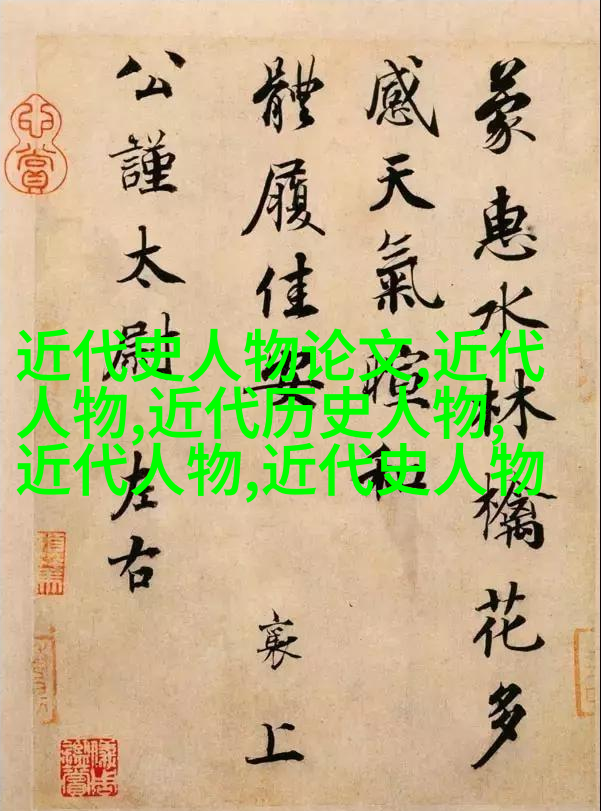 蒙惠水林檎花多
感天氣暄和
體履佳安
襄上
公謹太尉左右
近代史人物论文,近代
人物,近代历史人物,
近代人物,近代史人物